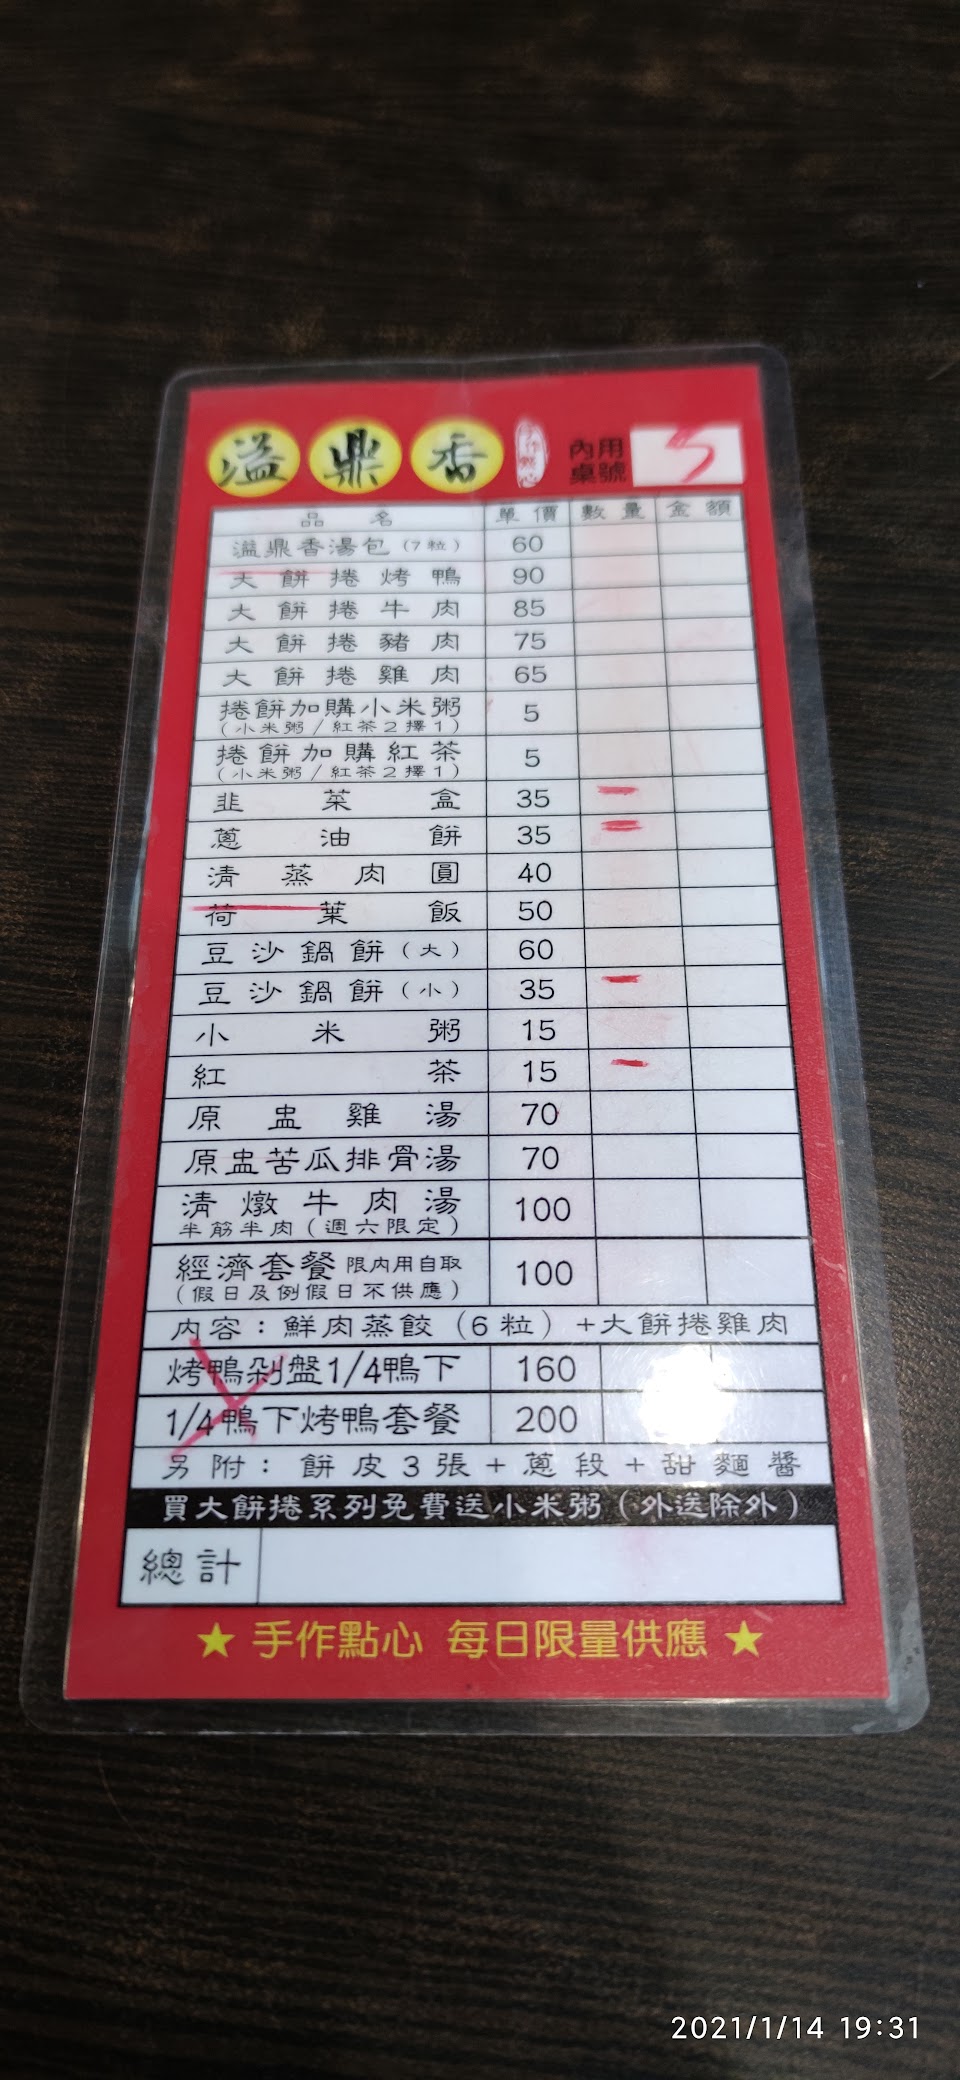 溢鼎香 手作點心 內用桌號 5
品名 單價 數量 金額
溢鼎香湯包(7粒) 60
大餅捲烤鴨 90
大餅捲牛肉 85
大餅捲豬肉 75
大餅捲雞肉 65
捲餅加購小米粥 5
(小米粥/紅茶2擇1)
捲餅加購紅茶 5
(小米粥/紅茶2擇1)
韭菜盒 35 一
蔥油餅 35 二
清蒸肉圓 40
荷葉飯 50
豆沙鍋餅(大) 60
豆沙鍋餅(小) 35 一
小米粥 15
紅茶 15 一
原盅雞湯 70
原盅苦瓜排骨湯 70
清燉牛肉湯 100
半筋半肉(週六限定)
經濟套餐 限內用自取 100
(假日及例假日不供應)
內容:鮮肉蒸餃(6粒)+大餅捲雞肉
烤鴨剁盤1/4鴨下 160
1/4鴨下烤鴨套餐 200
另附:餅皮3張+蔥段+甜麵醬
買大餅捲系列免費送小米粥(外送除外)
總計
★ 手作點心 每日限量供應 ★
2021/1/14 19:31